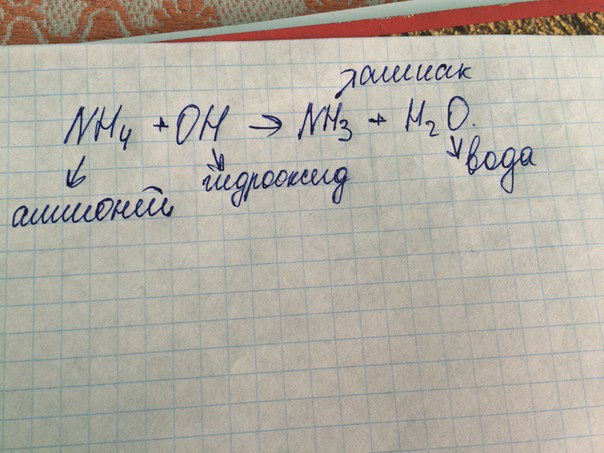 хамиак
NH4 + OH → NH3 + H2O.
аммоний гидрооксид вода